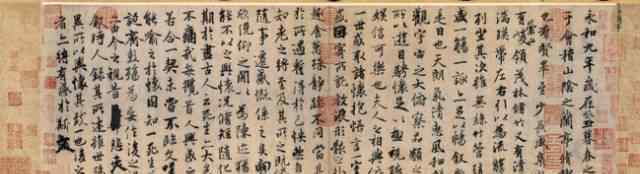 永和九年歲在癸丑暮春之
于會稽山陰之蘭亭脩禊
也羣賢畢至少長咸集
有崇山峻領茂林脩竹又有清
湍暎帶左右引以為流觴
列坐其次雖無絲竹管弦
盛一觴一詠亦足以暢敘
是日也天朗氣清惠風和
觀宇宙之大俯察品類
所以遊目騁懷足以極視聽
娛信可樂也夫人之相與
一世或取諸懷抱悟言一室
或因寄所託放浪形骸之
趣舍萬殊靜躁不同當其
於所遇暫得於己怏然自
知老之將至及其所之既
隨事遷感慨係之矣向
欣俛仰之閒以為陳迹
能不以之興懷況脩短隨化
期於盡古人云死生亦大
不痛哉每攬昔人興感
若合一契未嘗不臨文嗟
能喻之於懷固知一死生
誕齊彭殤為妄作後之
亦由今之視昔悲夫
敘時人錄其所述雖世殊
異所以興懷其致一也後之
者亦將有感於斯文